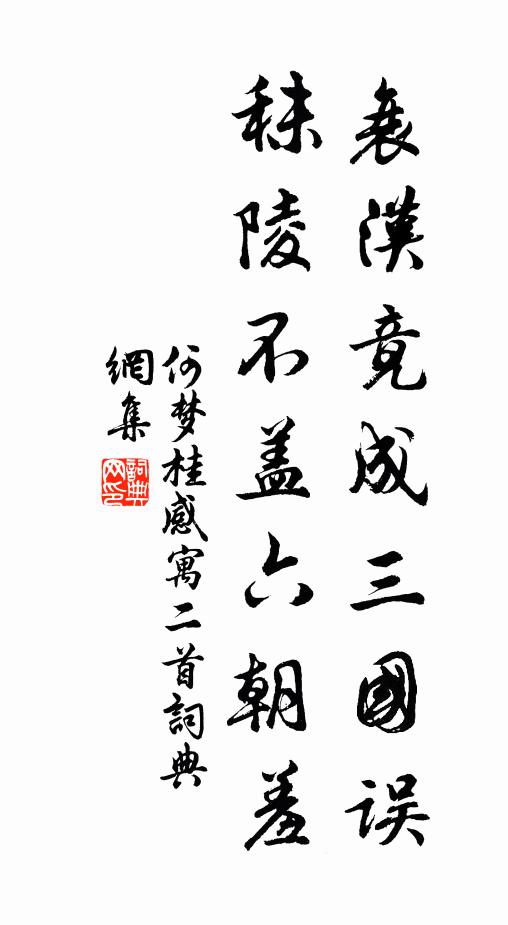 衰漢竟成三國误
秣陵不盖六朝羞
何梦桂感寓二首詞典
網集
詞典
网印